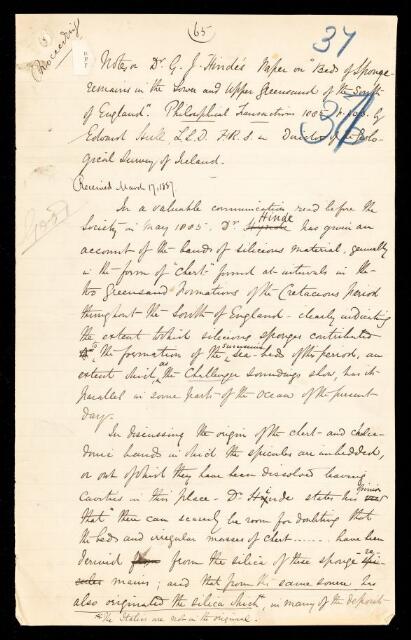 65
Proceedings
37
37
Notes on Dr G. J. Hinde's Paper on "Beds of Sponge-
remains in the Lower and Upper Greensand of the South
of England". Philosophical Transactions 1885 p. 403. By
Edward Hull, L.L.D. F.R.S. Director of the Geolo-
gical Survey of Ireland.
Received March 17, 1887.
In a valuable communication read before the
Society in May 1885. Dr Hinde has given an
account of the bands of silicious material, generally
in the form of "chert" found at intervals in the
two Greensand Formations of the Cretaceous Period
throughout the South of England - clearly indicating
the extent to which silicious sponges contributed
to the formation of the sea-bed of the period, an
extent which as the Challenger soundings show, has its
parallel in some parts of the ocean of the present
day.
In discussing the origin of the chert and chalce-
donic bands in which the spicules are imbedded,
or out of which they have been dissolved leaving
cavities in their place - Dr Hinde states his opinion
that "there can scarcely be room for doubting that
the beds and irregular masses of chert ........ have been
derived from the silica of these sponge re-
mains; and that from the same source has
also originated the silica which, in many of the deposits
* The Italics are not in the original.